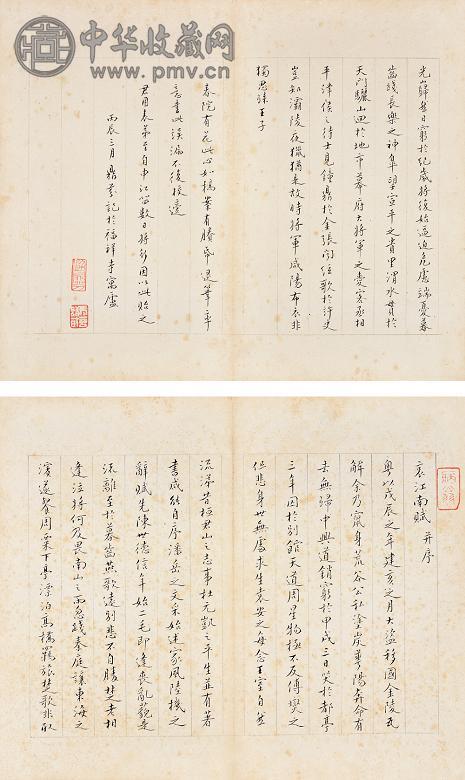 中华收藏网
www.pmv.cn
光巋然日窮於紀歲將復始逼迫危慮端憂暮
齒踐長樂之神臯望宣平之貴里渭水貫於
天門驪山迴於地市幕府大將軍之愛客丞相
平津侯之待士見鐘鼎於金張聞絃歌於許史
豈知灞陵夜獵猶是故時將軍咸陽布衣非
獨思歸王子
春院有花此心如槁業有勝帋退筆率
意書此誤漏不復校還
表弟至自申江留數日將歸因以此貽之
丙辰三月 記於福祥寺寓廬
哀江南賦 并序
粤以戊辰之年建亥之月大盜移國金陵瓦
解余乃竄身荒谷公私塗炭華陽奔命有
去無歸中興道銷窮於甲戌三日哭於都亭
三年囚於別館天道周星物極不反傅燮之
但悲身世無處求生袁安之每念王室自然
流涕昔桓君山之志事杜元凱之平生並有著
書咸能自序潘岳之文采始述家風陸機之
辭賦先陳世德信年始二毛即逢喪亂藐是
流離至於暮齒燕歌遠別悲不自勝楚老相
逢泣將何及畏南山之雨忽踐秦庭讓東海之
濱遂餐周粟下亭漂泊高橋羈旅楚歌非取